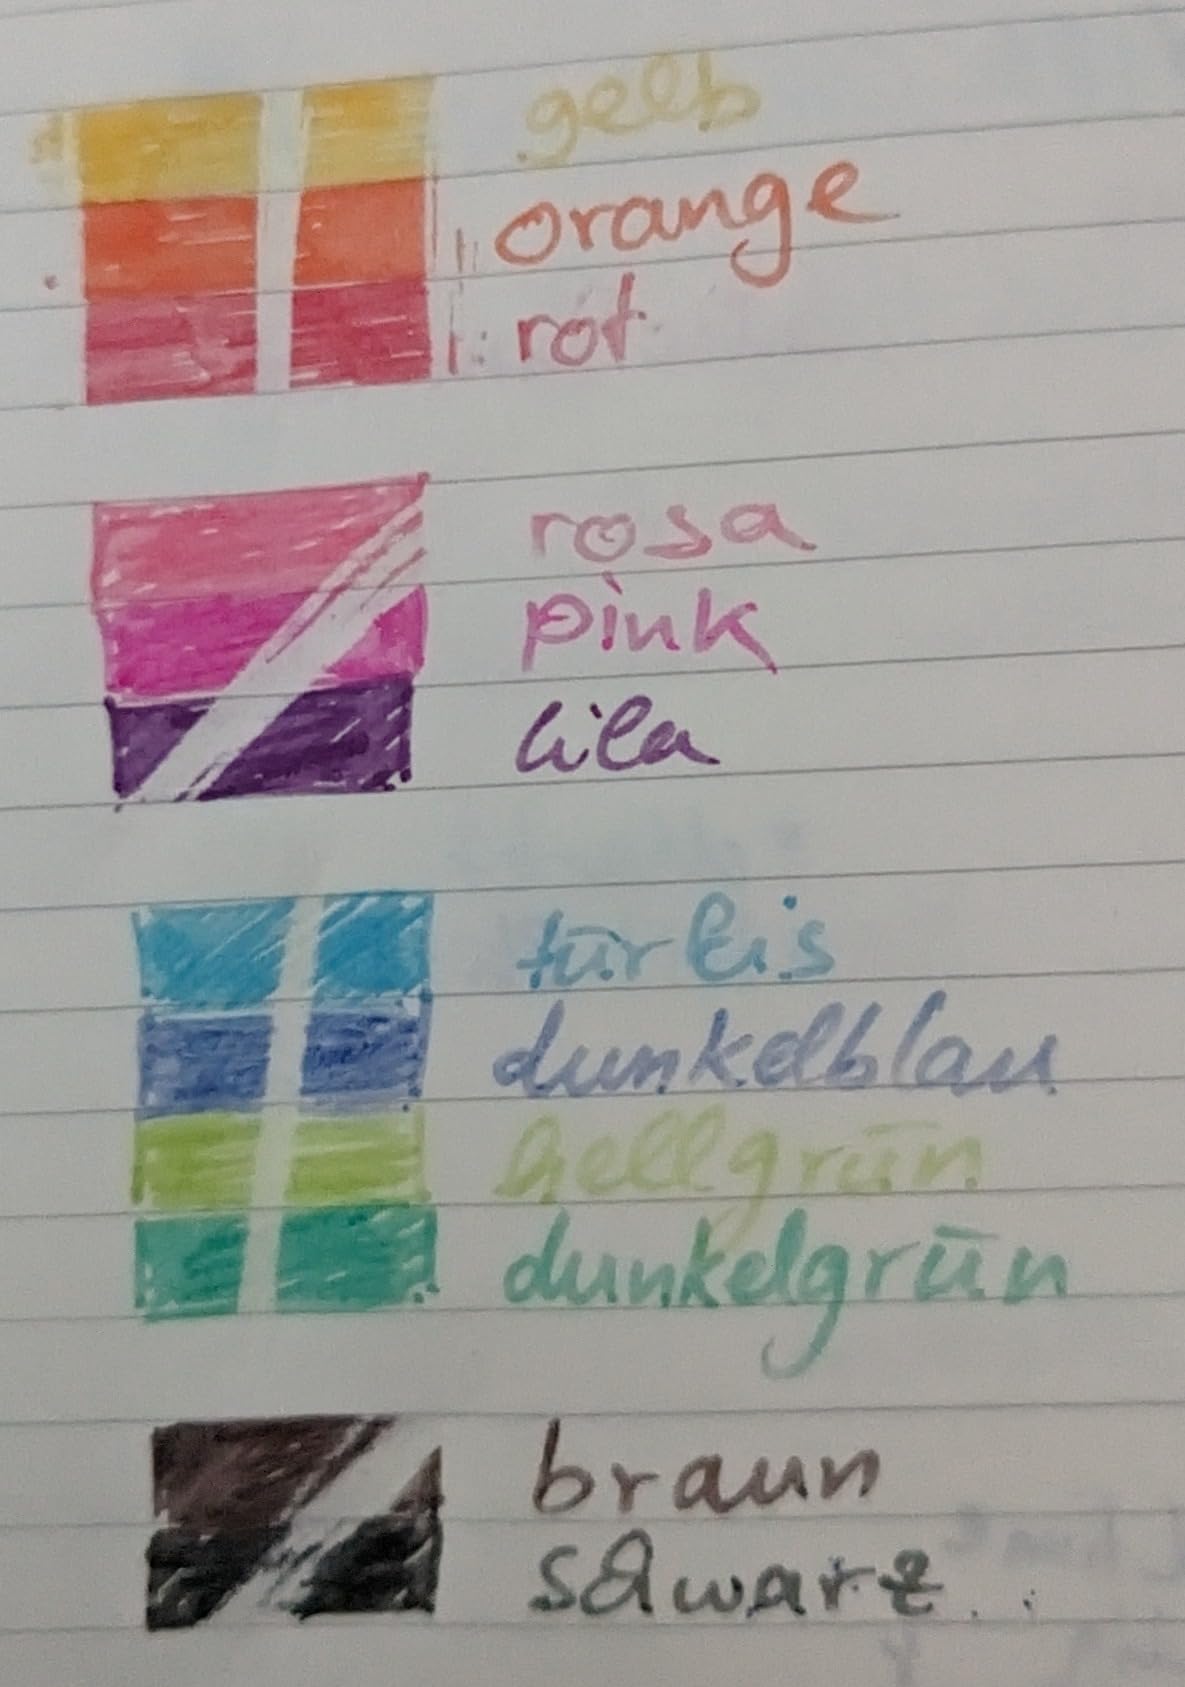 gelb
orange
rot
rosa
pink
lila
türkis
dunkelblau
hellgrün
dunkelgrün
braun
schwarz